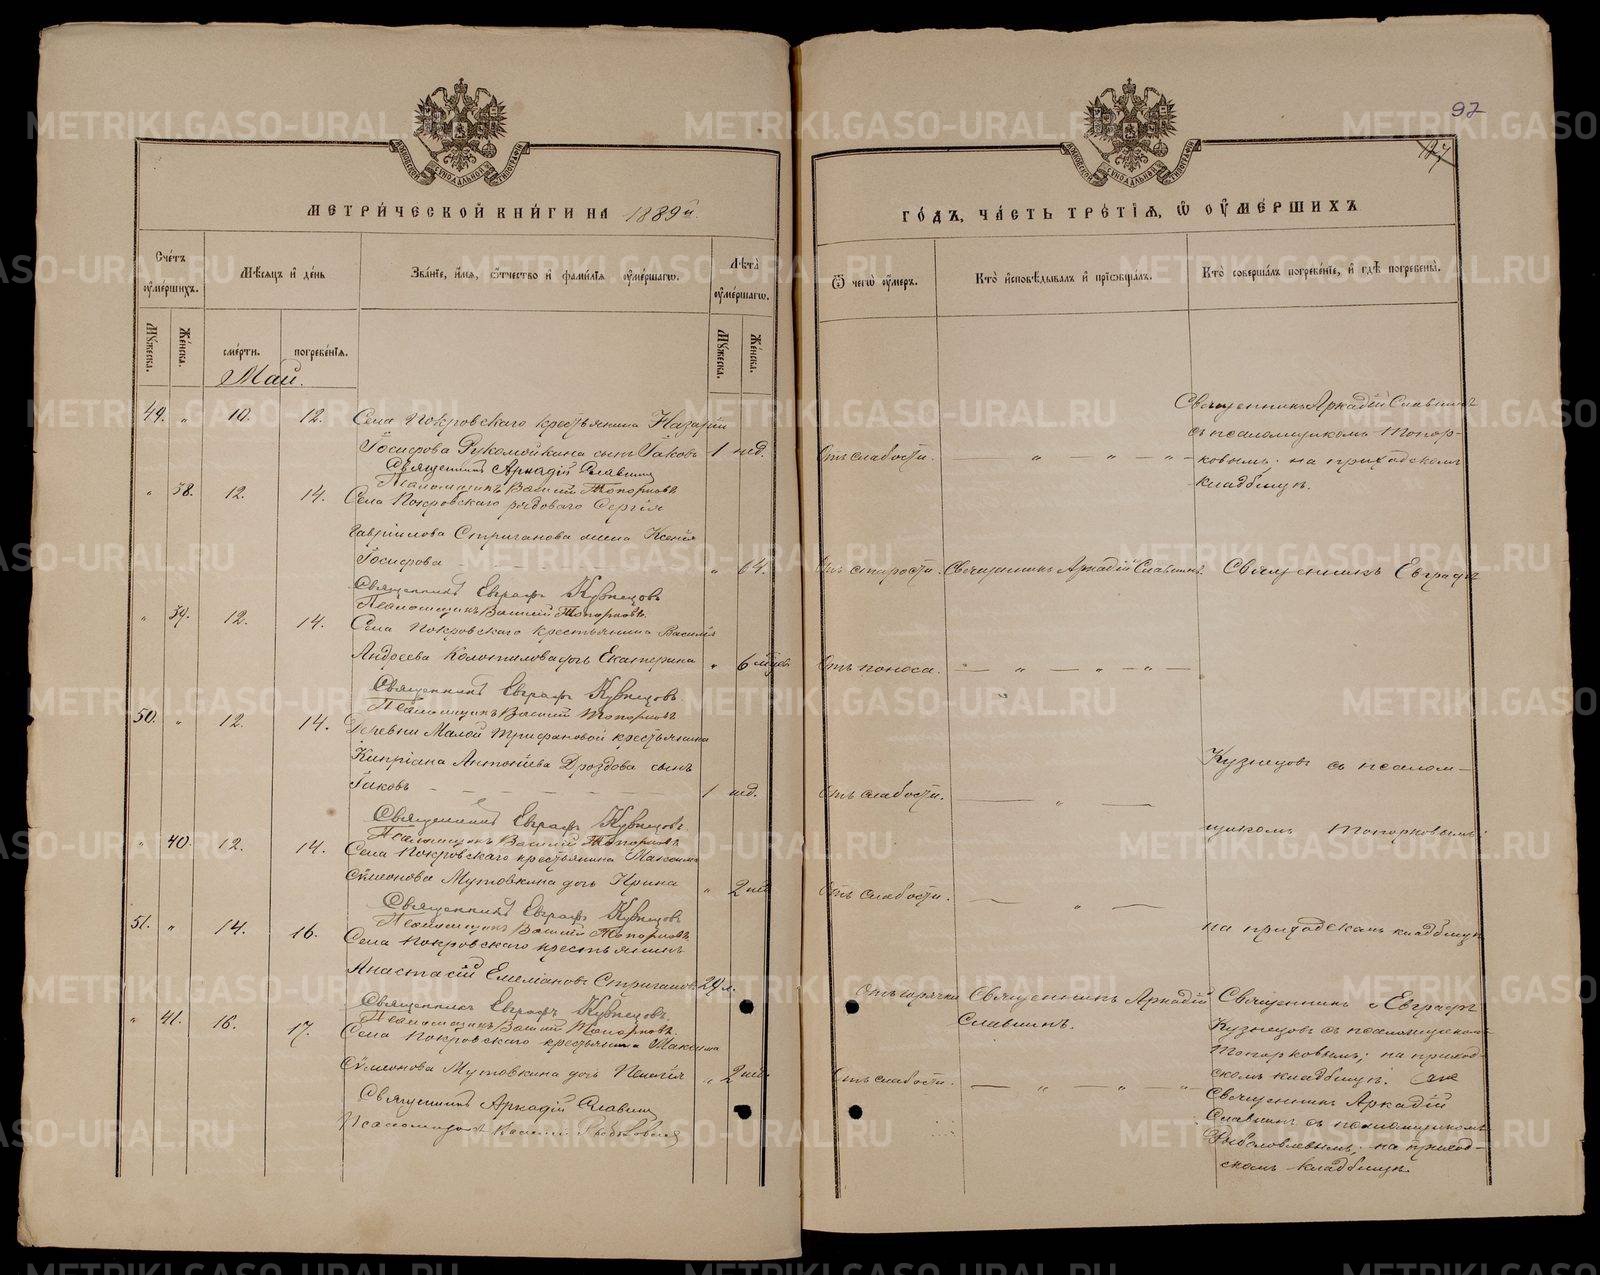 97
147
МЕТРИЧЕСКОЙ КНИГИ НА 1889й.
ГОДЪ, ЧАСТЬ ТРЕТІЯ, Ѿ ОУМЕРШИХЪ
Счетъ оумершихъ.
Мѣсяцъ и день
Званіе, имя, отчество и фамилія оумершагѡ.
Лѣта оумершагѡ.
Ѿ чегѡ оумеръ.
Кто исповѣдывалъ и пріобщалъ.
Кто совершалъ погребеніе, и гдѣ погребены.
Мужеска.
Женска.
смерти.
погребенія.
Мужеска.
Женска.
Май.
49. " 10. 12. Села Покровскаго крестьянина Назарія
Іосифова Рукомойкина сынъ Іаковъ 1 нед. Отъ слабости. — " — " — " —
Священникъ Аркадій Славнинъ
съ псаломщикомъ Топор-
ковымъ; на приходскомъ
кладбищѣ.
Священникъ Аркадій Славнинъ
Псаломщикъ Василій Топорковъ
" 38. 12. 14. Села Покровскаго рядоваго Сергія
Гавріилова Стриганова жена Ксенія
Іосифова — " 64. Отъ старости. Священникъ Аркадій Славнинъ. Священникъ Евграфъ
Священникъ Евграфъ Кузнецовъ
Псаломщикъ Василій Топорковъ.
" 39. 12. 14. Села Покровскаго крестьянина Василія
Андреева Колотилова дочь Екатерина " 6 мѣсяц. Отъ поноса. — " — " — " —
Священникъ Евграфъ Кузнецовъ
Псаломщикъ Василій Топорковъ
50. " 12. 14. Деревни Малой Трифановой крестьянина
Кипріана Антоніева Дроздова сынъ
Кузнецовъ съ псалом-
Іаковъ — 1 нед. Отъ слабости. — " —
Священникъ Евграфъ Кузнецовъ
щикомъ Топорковымъ;
Псаломщикъ Василій Топорковъ
" 40. 12. 14. Села Покровскаго крестьянина Максима
Сѵмеонова Мутовкина дочь Ирина " 2 нед. Отъ слабости. — " —
Священникъ Евграфъ Кузнецовъ
на приходскомъ кладбищѣ
Псаломщикъ Василій Топорковъ.
51. " 14. 16. Села Покровскаго крестьянинъ
Анастасій Емеліановъ Стригановъ 29 л. Отъ горячки Священникъ Аркадій Славнинъ.
Священникъ Евграфъ
Кузнецовъ съ псаломщикомъ
Топорковымъ; на приход-
скомъ кладбищѣ.
Священникъ Евграфъ Кузнецовъ.
Псаломщикъ Василій Топорковъ.
" 41. 16. 17. Села Покровскаго крестьянина Максима
Сѵмеонова Мутовкина дочь Пелагія " 2 нед. Отъ слабости. — " — " — " —
Священникъ Аркадій
Славнинъ съ псаломщикомъ
Рыболовлевымъ; на приход-
скомъ кладбищѣ.
Священникъ Аркадій Славнинъ
Псаломщикъ Василій
METRIKI.GASO-URAL.RU